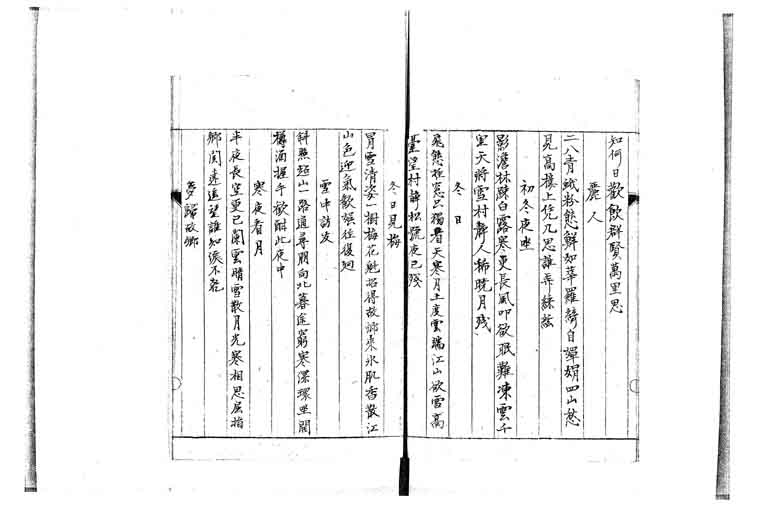 知何日歡飲群賢萬里思
麗人
二八青娥粉態鮮如華羅綺自嬋娟四山愁
見高樓上凭几思誰弄絲絃
初冬夜坐
影滿林踈白露寒更長風叩欲眠難凍雲千
里天將雪村靜人稀晩月殘
冬日
獨看天寒月上度雲端江山欲雪高
臺望村靜松號夜已殘
冬日見梅
冒雪清姿一樹梅花魁招得故鄉來氷肌香散江
山色迎氣歡娛往復廻
雪中訪友
斜照超山一路通尋朋向北暮途窮寒深環坐開
樽酒握手欲酣此夜中
寒夜看月
半夜長空更已闌雲晴雪散月光寒相思屈指
鄉関遠遥望誰知淚不乾
夢歸故鄉